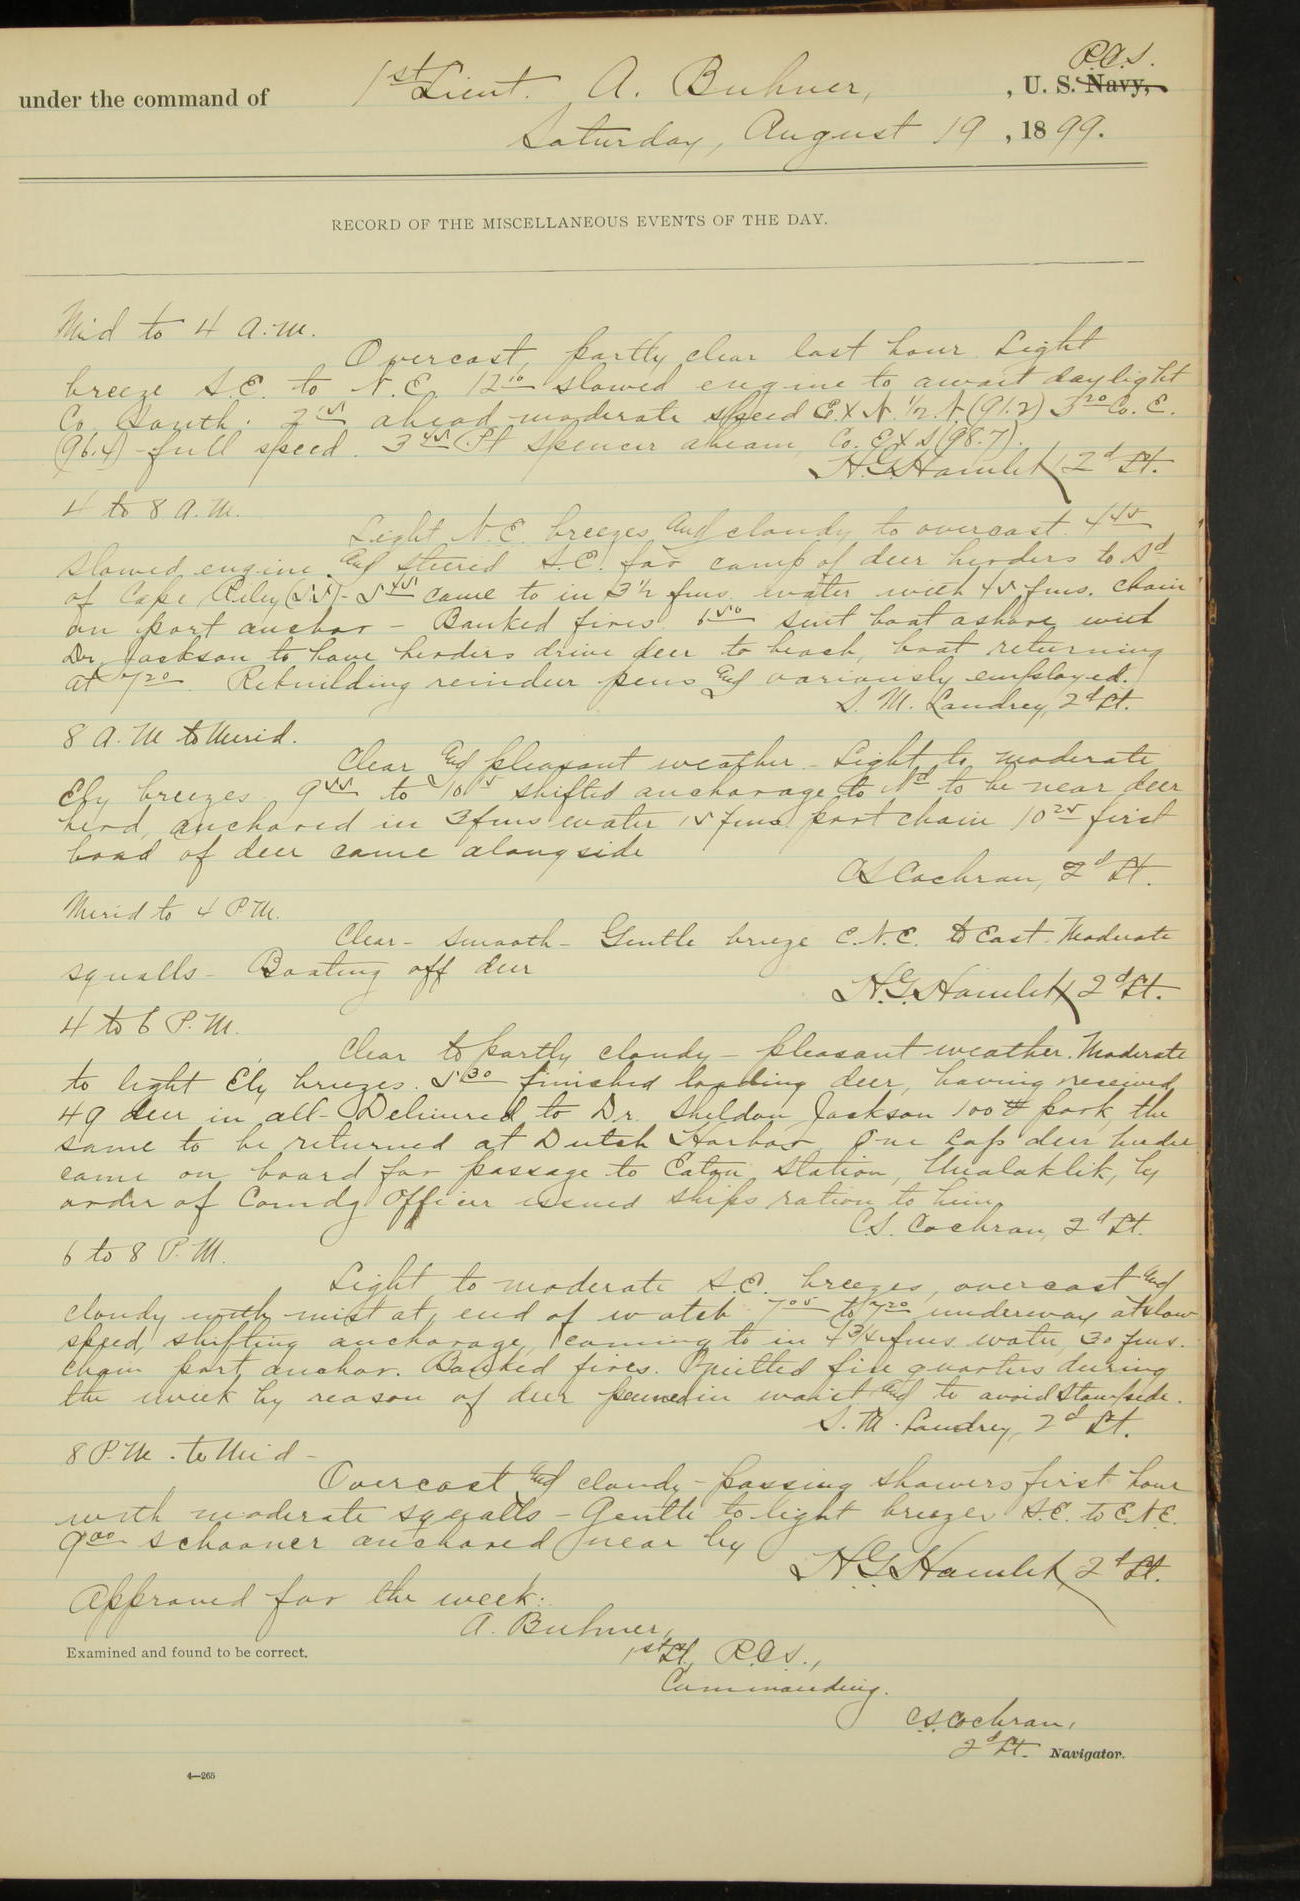 under the command of 1st Lieut. A. Buhner, , U. S. Navy, R.C.S.
Saturday, August 19 , 1899.
RECORD OF THE MISCELLANEOUS EVENTS OF THE DAY.
Mid to 4 A.M.
Overcast, partly clear last hour. Light
breeze S.E. to N.E. 12 10 slowed engine to await daylight
Co. South. ahead moderate speed E.XN.½.N.(91.2) 3 20 Co. E.
(96.4) - full speed. 3 45 Pt Spencer abeam Co. EXS (98.7).
H.G. Hamlet, 2d Lt.
4 to 8 A.M.
Light N.E. breezes and cloudy to overcast. 4 45
slowed engine and steered S.E. for camp of deer herders to Sd
of Cape Riley (5.5) - 5 45 came to in 3½ fms. water with 45 fms. chain
on port anchor - Banked fires. 6 50 sent boat ashore with
Dr. Jackson to have herders drive deer to beach, boat returning
at 7 20. Rebuilding reindeer pens and variously employed.
S. M. Landrey, 2d Lt.
8 A.M to Merid.
Clear and pleasant weather - Light to moderate
Ely breezes. 9 55 to 10 15 shifted anchorage to Nd to be near deer
herd, anchored in 3 fms water 15 fms. port chain 10 25 first
boad of deer came alongside
C.S. Cochran, 2d Lt.
Merid to 4 P.M.
Clear - smooth - Gentle breeze E.N.E. to East. Moderate
squalls - Boating off deer
H.G. Hamlet, 2d Lt.
4 to 6 P.M.
Clear to partly cloudy - pleasant weather. Moderate
to light Ely breezes. 5 30 finished loading deer, having received
49 deer in all - Delivered to Dr. Sheldon Jackson 100 # pork, the
same to be returned at Dutch Harbor. One Lap deer herder
came on board for passage to Eaton Station, Unalaklik, by
order of Comdg Officer issued ships ration to him.
C.S. Cochran, 2d Lt.
6 to 8 P.M.
Light to moderate S.E. breezes, overcast and
cloudy with mist at end of watch 7 05 to 7 20 underway at slow
speed, shifting anchorage, coming to in 4¾ fms. water, 30 fms.
chain port anchor. Banked fires. Omitted fire quarters during
the week by reason of deer penned in waist and to avoid stampede.
S. M. Landrey, 2d Lt.
8 P.M. to Mid -
Overcast and cloudy - passing showers first hour
with moderate squalls - Gentle to light breezes S.E. to E.N.E.
9 00 schooner anchored near by
H.G. Hamlet, 2d Lt.
Approved for the week:
A. Buhner,
Examined and found to be correct. 1st Lt., R.C.S.,
Commanding.
C.S. Cochran,
2d Lt. Navigator.
4—265